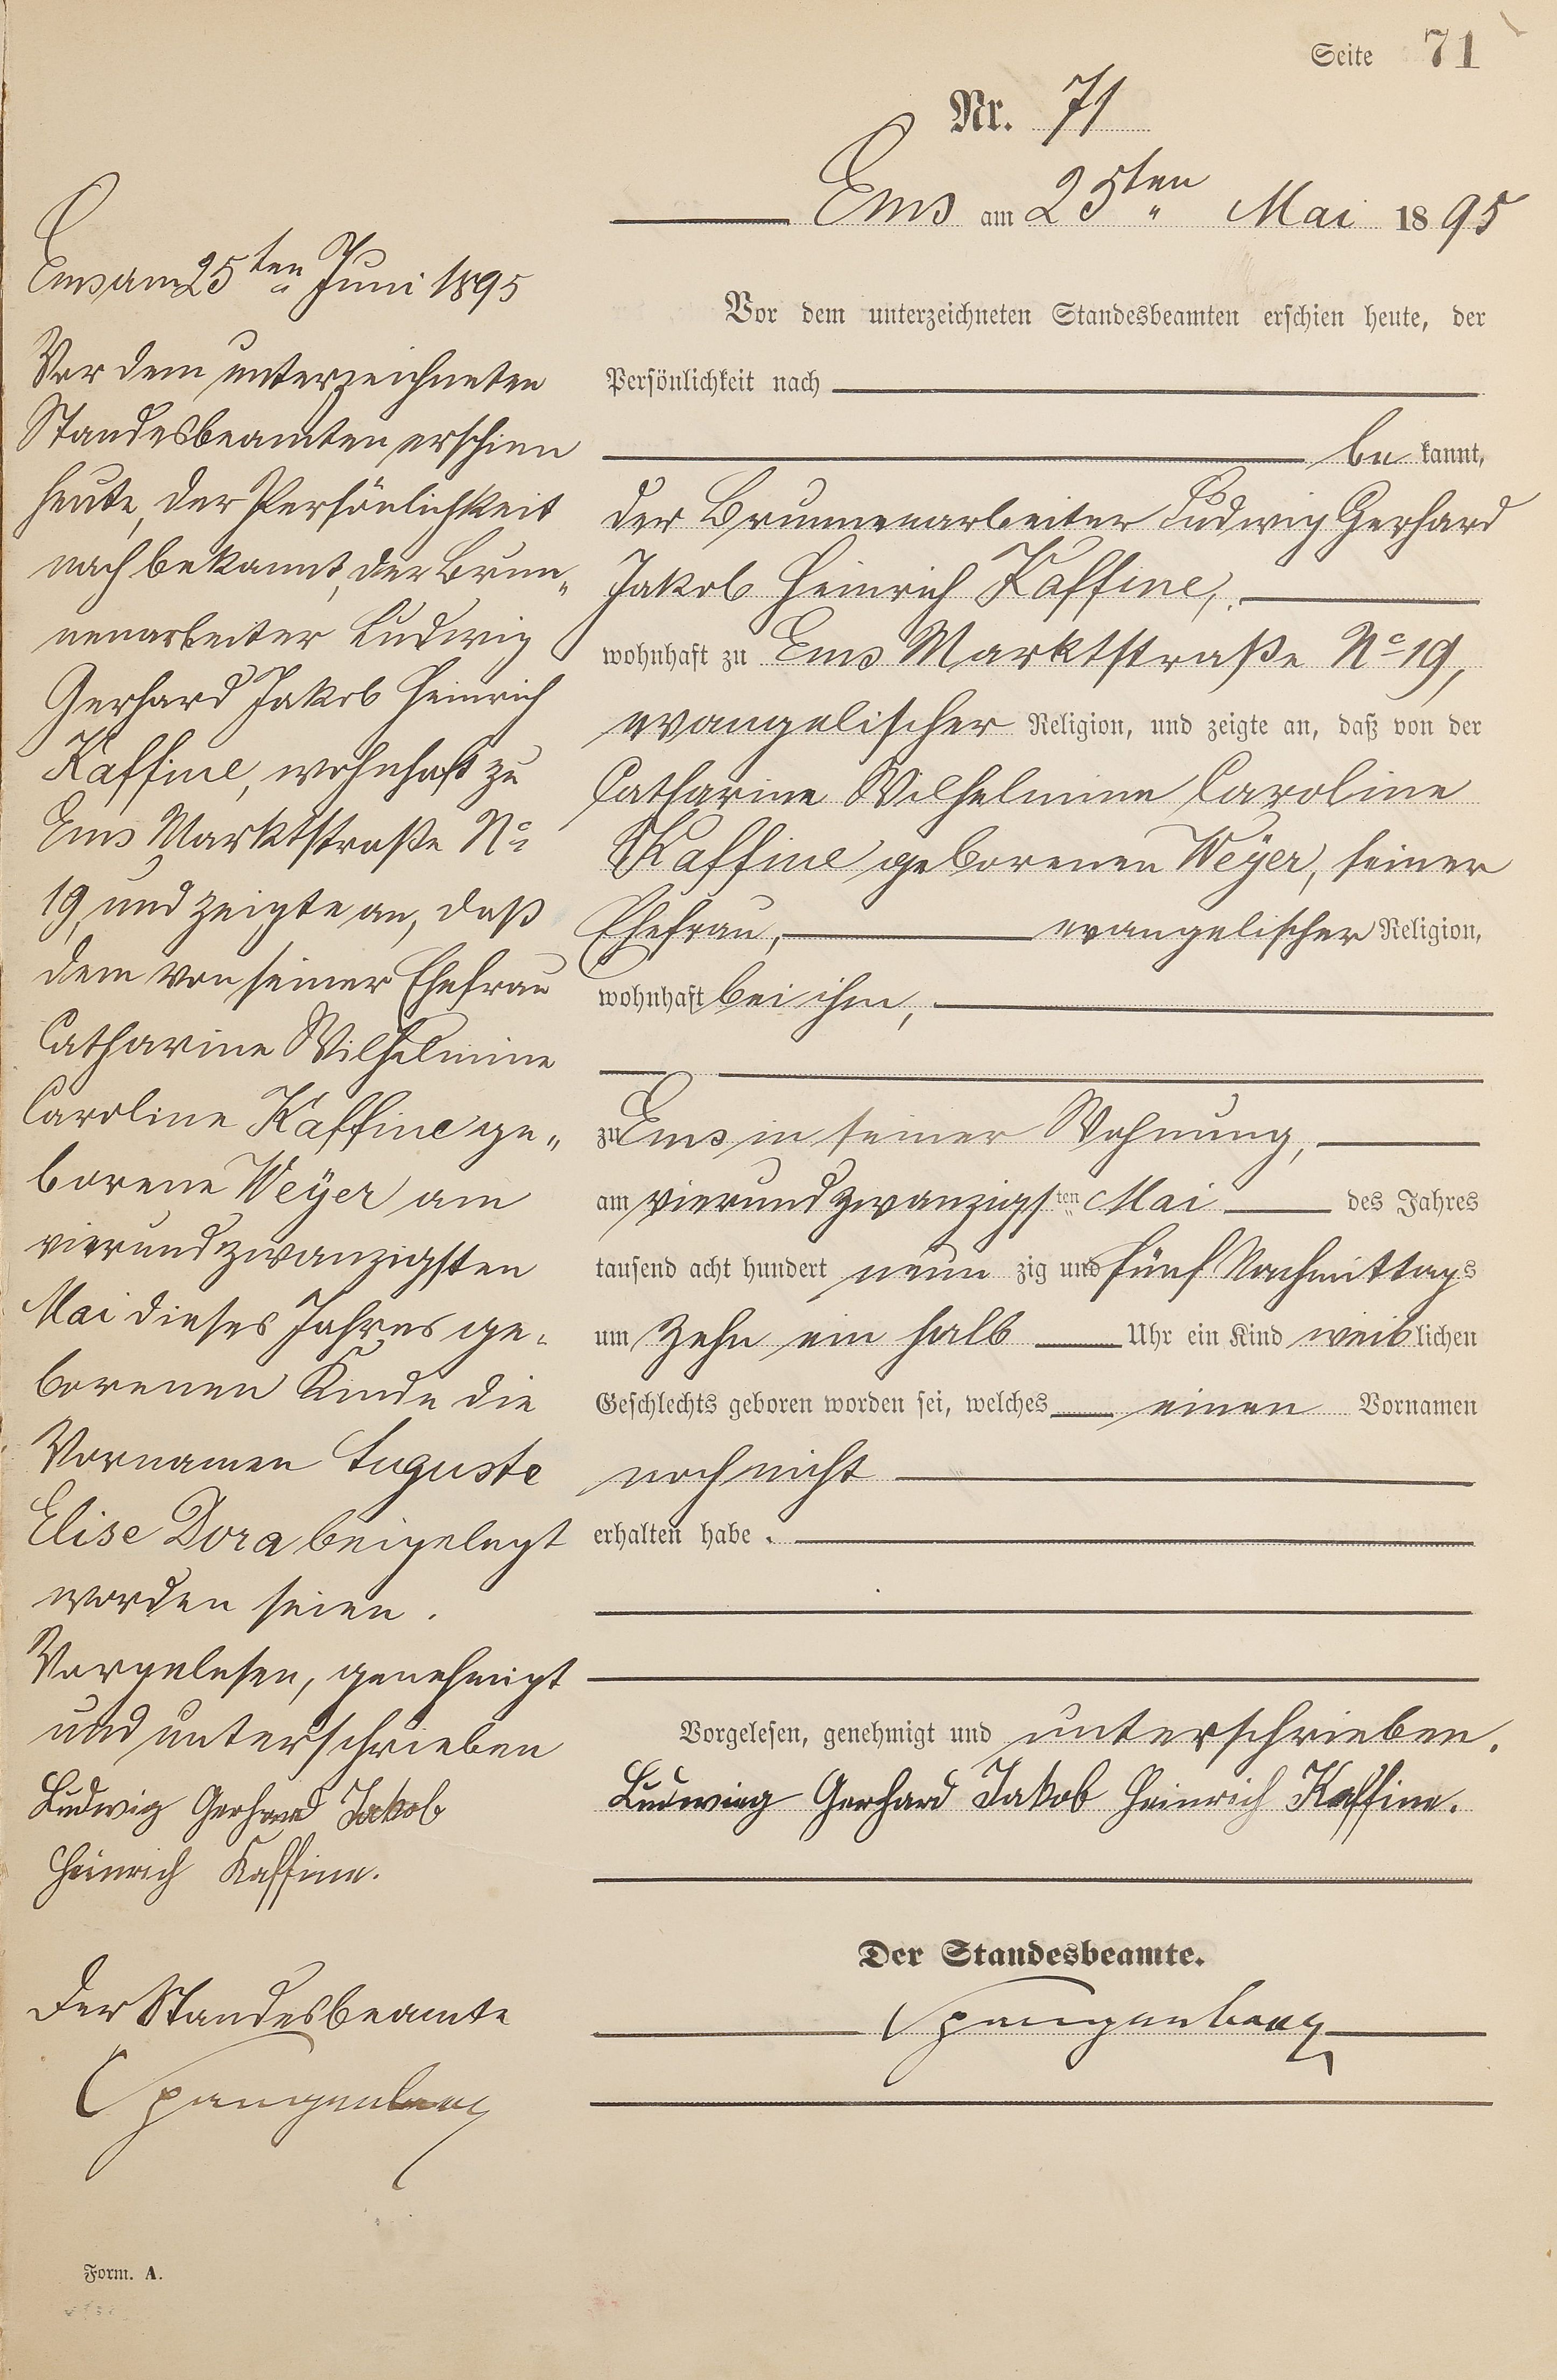 Seite 71
Nr. 71
Ems am 25ten Mai 1895
Vor dem unterzeichneten Standesbeamten erschien heute, der
Persönlichkeit nach
be kannt,
der Brunnenarbeiter Ludwig Gerhard
Jakob Heinrich Kaffine,
wohnhaft zu Ems Marktstraße No 19,
evangelischer Religion, und zeigte an, daß von der
Catharine Wilhelmine Caroline
Kaffine geborenen Weÿer, seiner
Ehefrau, evangelischer Religion,
wohnhaft bei ihm,
zu Ems in seiner Wohnung,
am vierundzwanzigsten Mai des Jahres
tausend acht hundert neun zig und fünf Nachmittags
um zehn ein halb Uhr ein Kind weiblichen
Geschlechts geboren worden sei, welches einen Vornamen
noch nicht
erhalten habe.
Vorgelesen, genehmigt und unterschrieben.
Ludwieg Gerhard Jakob Heinrich Kaffine.
Der Standesbeamte.
Spangenberg
Ems am 25ten Juni 1895
Vor dem unterzeichneten
Standesbeamten erschien
heute, der Persönlichkeit
nach bekannt, der Brun„
nenarbeiter Ludwig
Gerhard Jakob Heinrich
Kaffine, wohnhaft zu
Ems Marktstraße No
19, und zeigte an, daß
dem von seiner Ehefrau
Catharine Wilhelmine
Caroline Kaffine ge„
borene Weÿer am
vierundzwanzigsten
Mai dieses Jahres ge„
borenen Kinde die
Vornamen Auguste
Elise Dora beigelegt
worden seien.
Vorgelesen, genehmigt
und unterschrieben
Ludwig Gerhard Jakob
Heinrich Kaffine.
Der Standesbeamte
Spangenberg
Form. A.